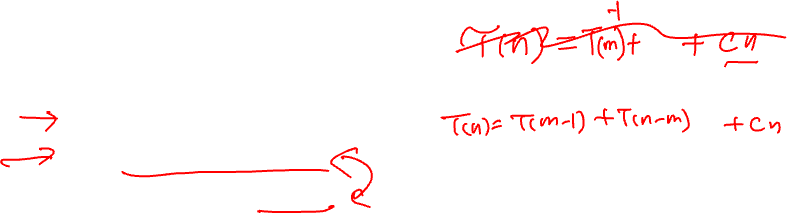 T(n) = T(m) + -1 + cn
T(n) = T(m-1) + T(n-m) + cn